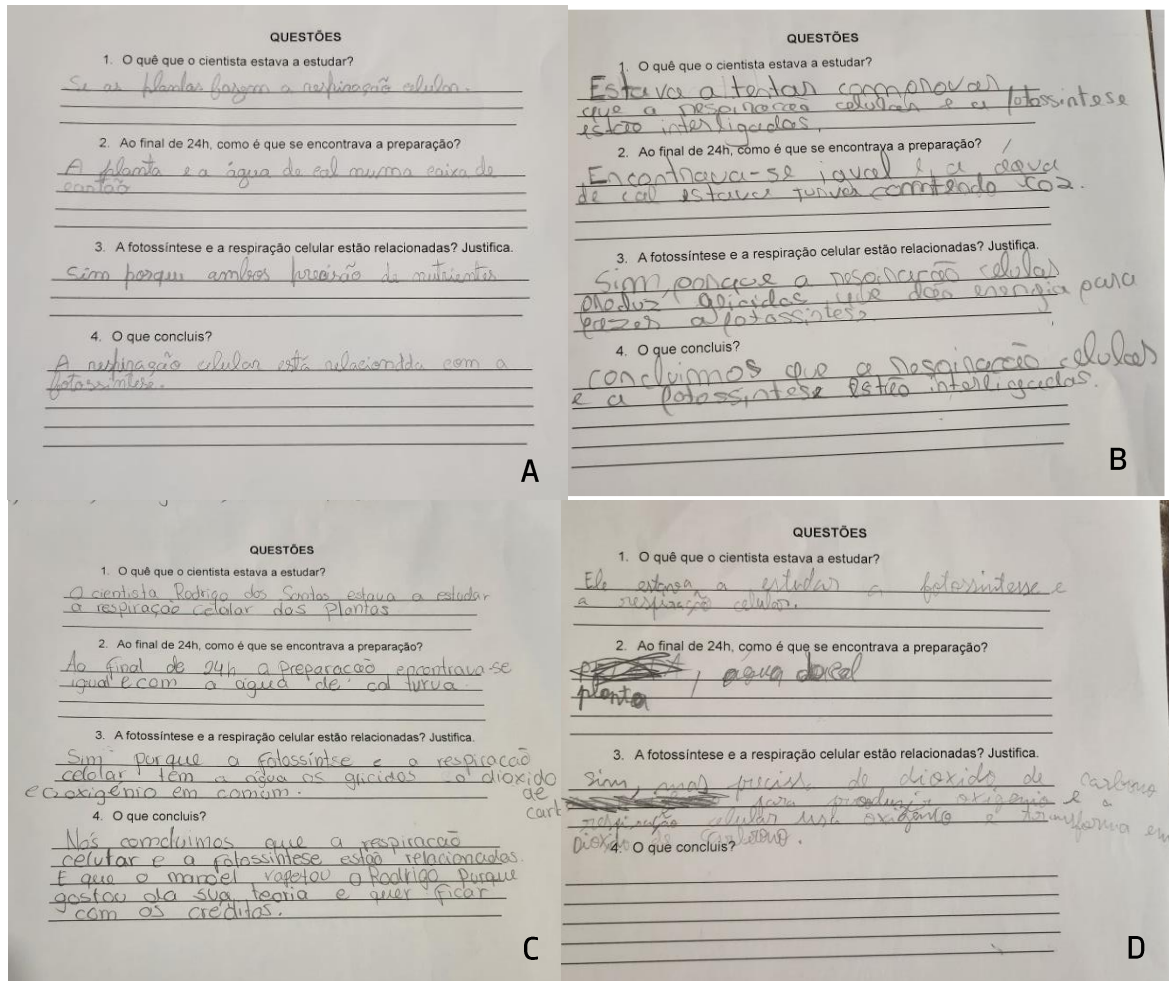 QUESTÕES
1. O quê que o cientista estava a estudar?
Se as plantas fazem a respiração celular.
2. Ao final de 24h, como é que se encontrava a preparação?
A planta e a água de cal numa caixa de
cartão
3. A fotossíntese e a respiração celular estão relacionadas? Justifica.
Sim porque ambos precisão de nutrientes
4. O que concluis?
A respiração celular está relacionada com a
fotossíntese.
A
QUESTÕES
1. O quê que o cientista estava a estudar?
Estava a tentar comprovar
que a respiração celular e a fotossintese
estão interligadas.
2. Ao final de 24h, como é que se encontrava a preparação?
Encontrava-se igual e a água
de cal estava turva contendo CO2.
3. A fotossíntese e a respiração celular estão relacionadas? Justifica.
Sim, porque a respiração celular
produz glicidos, que dão energia para
fazer a fotossintese
4. O que concluis?
Concluimos que a respiração celular
e a fotossintese estão interligadas.
B
QUESTÕES
1. O quê que o cientista estava a estudar?
O cientista Rodrigo dos Santos estava a estudar
a respiração celolar das Plantas
2. Ao final de 24h, como é que se encontrava a preparação?
Ao final de 24h a Preparação encontrava-se
igual e com a água de cal turva.
3. A fotossíntese e a respiração celular estão relacionadas? Justifica.
Sim porque a fotossíntse e a respiração
celolar têm a água os glicidos o dióxido de carb
e o oxigénio em comum.
4. O que concluis?
Nós comcluimos que a respiração
celular e a fotossintese estão relacionadas.
E que o manoel raptou o Rodrigo Porque
gostou da sua teoria e quer ficar
com os créditos.
C
QUESTÕES
1. O quê que o cientista estava a estudar?
Ele estava a estudar a fotossintesse e
a respiração celular.
2. Ao final de 24h, como é que se encontrava a preparação?
planta, água de cal
3. A fotossíntese e a respiração celular estão relacionadas? Justifica.
Sim, precisa de dioxido de carbono
para produzir oxigénio e a
respiração celular usa oxigénio e transforma em
Dioxido de Carbono.
4. O que concluis?
D